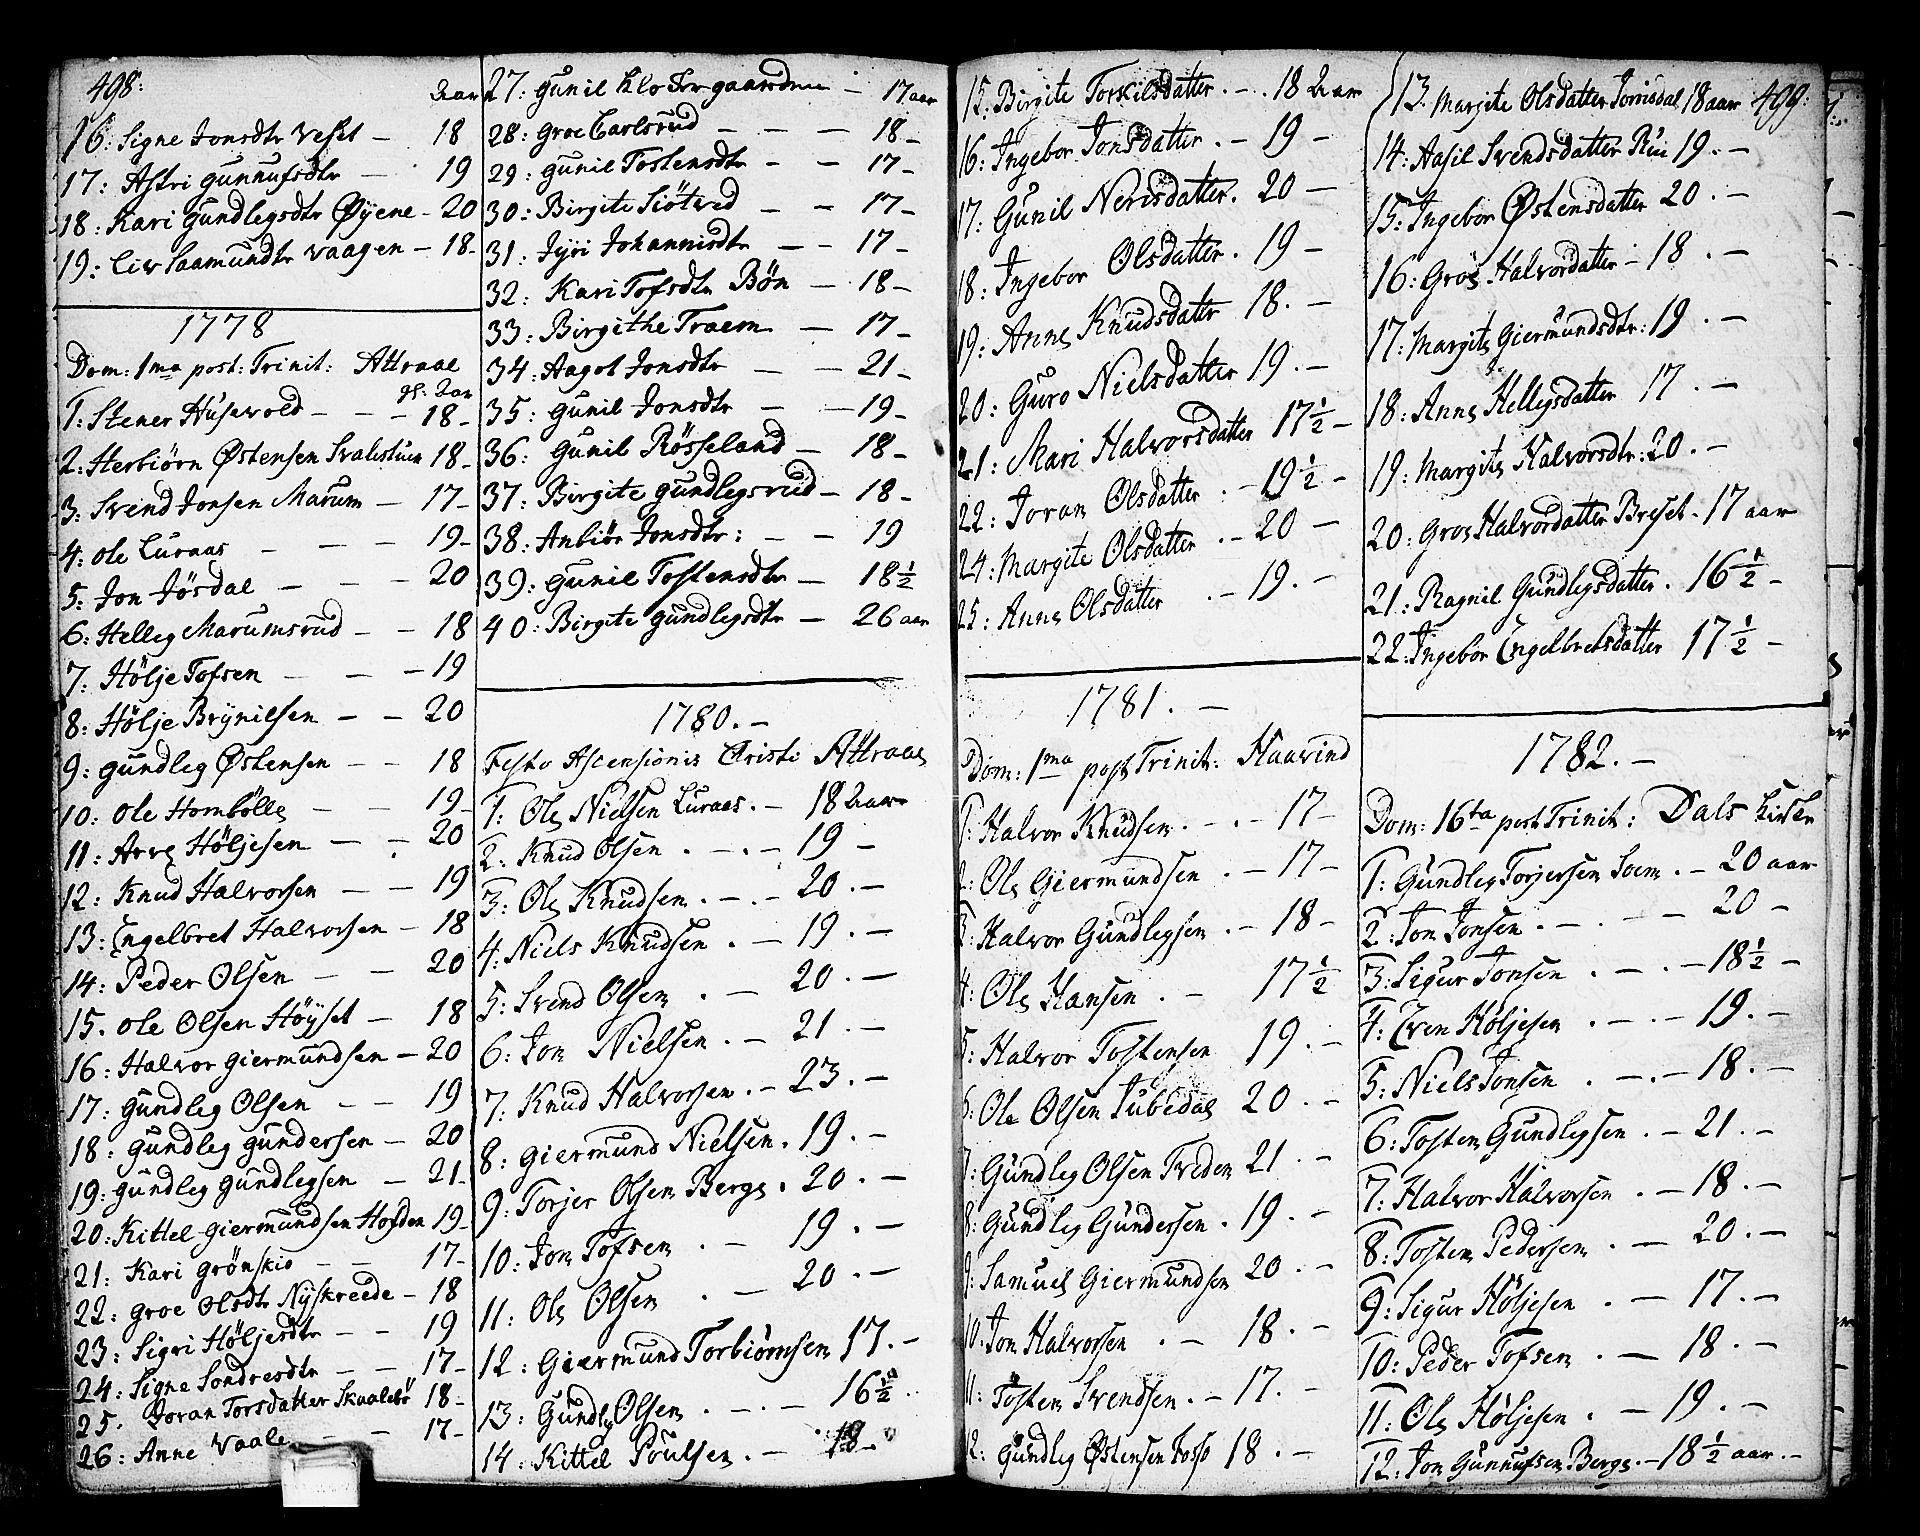 498:
Aar
16: Signe Jonsdtr Veset — 18
17: Astri gunnufsdtr — 19
18: Kari gundlegsdtr Øÿene - 20
19: Liv Saamundtr vaagen - 18-
1778
Dom: 1ma post: Trinit: Attraae
gl: Aar
1: Stener Husevold - - - 18-
2: Herbiørn Østensen Svalestuen 18-
3: Svend Jonsen Marum - 17-
4: ole Luraas - - - 19-
5: Jon Jøsdal - - - 20
6: Helleg Marumsrud - - 18
7: Hölje Tofsen - - - 19
8: Hölje Brÿnilsen - - 20
9: gundleg Østensen - - 18
10: ole Hombölle - - 19-
11: Arve Höljesen - - 20
12: Knud Halvorsen - - 19
13: Engelbret Halvorsen - 18
14: Peder Olsen - - 20
15. ole Olsen Höÿset - 18
16: Halvor giermundsen - 20
17: gundleg Olsen - - 19
18: gundleg gundersen - 20
19: gundleg gundlegsen - 21-
20: Kittel giermundsen Hofden 19-
21: Kari grönskio - - 17-
22: groe Olsdtr Nÿskreede - 18
23: Sigri Höljesdtr - - 19
24: Signe Sondresdtr - - 17-
25. Joran Torsdatter Skaalebö 18-
26: Anne Vaale 17-
27: gunil Klo - 17 aar
28: groe Carlsrud - - - 18-
29: gunil Tostensdtr - - 17-
30: Birgite Siötved - - 17-
31: Jÿri Johannisdtr - - 17-
32: Kari Tofsdtr Bön - 18-
33: Birgithe Traem - 17-
34: Aagot Jonsdtr - - 21-
35: gunil Jonsdtr - - 19-
36: gunil Rösseland - 18-
37: Birgite gundlegsrud - 18-
38: Anbiör Jonsdtr: - - 19
39: gunil Tostensdtr - 18½
40: Birgite gundlegsdtr - 26 aar
1780. -
Festo Ascensionis Christi Attraae
1: Ole Nielsen Luraas. - 18 Aar
2: Knud Olsen . - . - 19 -
3: Ole Knudsen . - . - 20. -
4: Niels Knudsen . - 19. -
5: Svend Olsen . - 20. -
6: Jon Nielsen . - 21. -
7: Knud Halvorsen . - 23. -
8: giermund Nielsen . 19. -
9: Torjer Olsen Berge . 20. -
10: Jon Tofsen . - 19. -
11: Ole Olsen . - 20. -
12: Giermund Torbiörnsen 17. -
13: Gundleg Olsen . - . - 16½
14: Kittel Poulsen . - 18-
15: Birgite Torkilsdatter . - . 18 Aar
16: Ingebor Jonsdatter . - 19 -
17: Gunil Nerisdatter. 20 -
18: Ingebor Olsdatter . 19 -
19: Anne Knudsdatter 18. -
20: Guro Nielsdatter 19. -
21: Mari Halvorsdatter 17½ -
22: Joran Olsdatter . - 19½ -
24: Margite Olsdatter . - 20 -
25: Anne Olsdatter . - 19. -
1781. -
Dom: 1ma post Trinit: Haavind
1: Halvor Knudsen . - . - 17-
2: Ole Giermundsen . - 17-
3: Halvor Gundlegsen . - 18-
4: Ole Hansen . - 17½
5: Halvor Tostensen 19. -
6: Ole Olsen Jubedal 20. -
7: Gundleg Olsen Treden 21. -
8: Gundleg Gundersen . 19. -
9: Samuel Giermundsen 20. -
10. Jon Halvorsen . - 18. -
11: Tosten Svendsen . - 17. -
12: Gundleg Østensen 18. -
13. Margite Olsdatter 18 aar 499:
14: Aasil Svendsdatter Rui 19. -
15: Ingebor Østensdatter 20. -
16: Groe Halvordatter - 18. -
17: Margite Giermundsdtr: 19. -
18: Anne Hellegsdatter 17. -
19: Margite Halvorsdtr: 20. -
20: Groe Halvordatter Breset - 17 aar
21: Ragnil Gundlegsdatter . 16½ -
22: Ingebor Engelbretsdatter 17½ -
1782. -
Dom: 16ta post Trinit: Dals Kirke
1: Gundleg Torjersen Soem . - 20 aar
2: Jon Jonsen . - . - - 20 -
3: Sigur Jonsen . - . - 18½ -
4: Even Höljesen . - . - 19. -
5: Niels Jonsen . - . - 18. -
6: Tosten Gundlegsen . - 21. -
7: Halvor Halvorsen . - 18. -
8: Tosten Pedersen . - 20. -
9: Sigur Höljesen . - 17. -
10: Peder Tofsen . - 18. -
11: Ole Höljesen . - 19. -
12: Jon Gunnufsen Berge. - 18½ aar. -